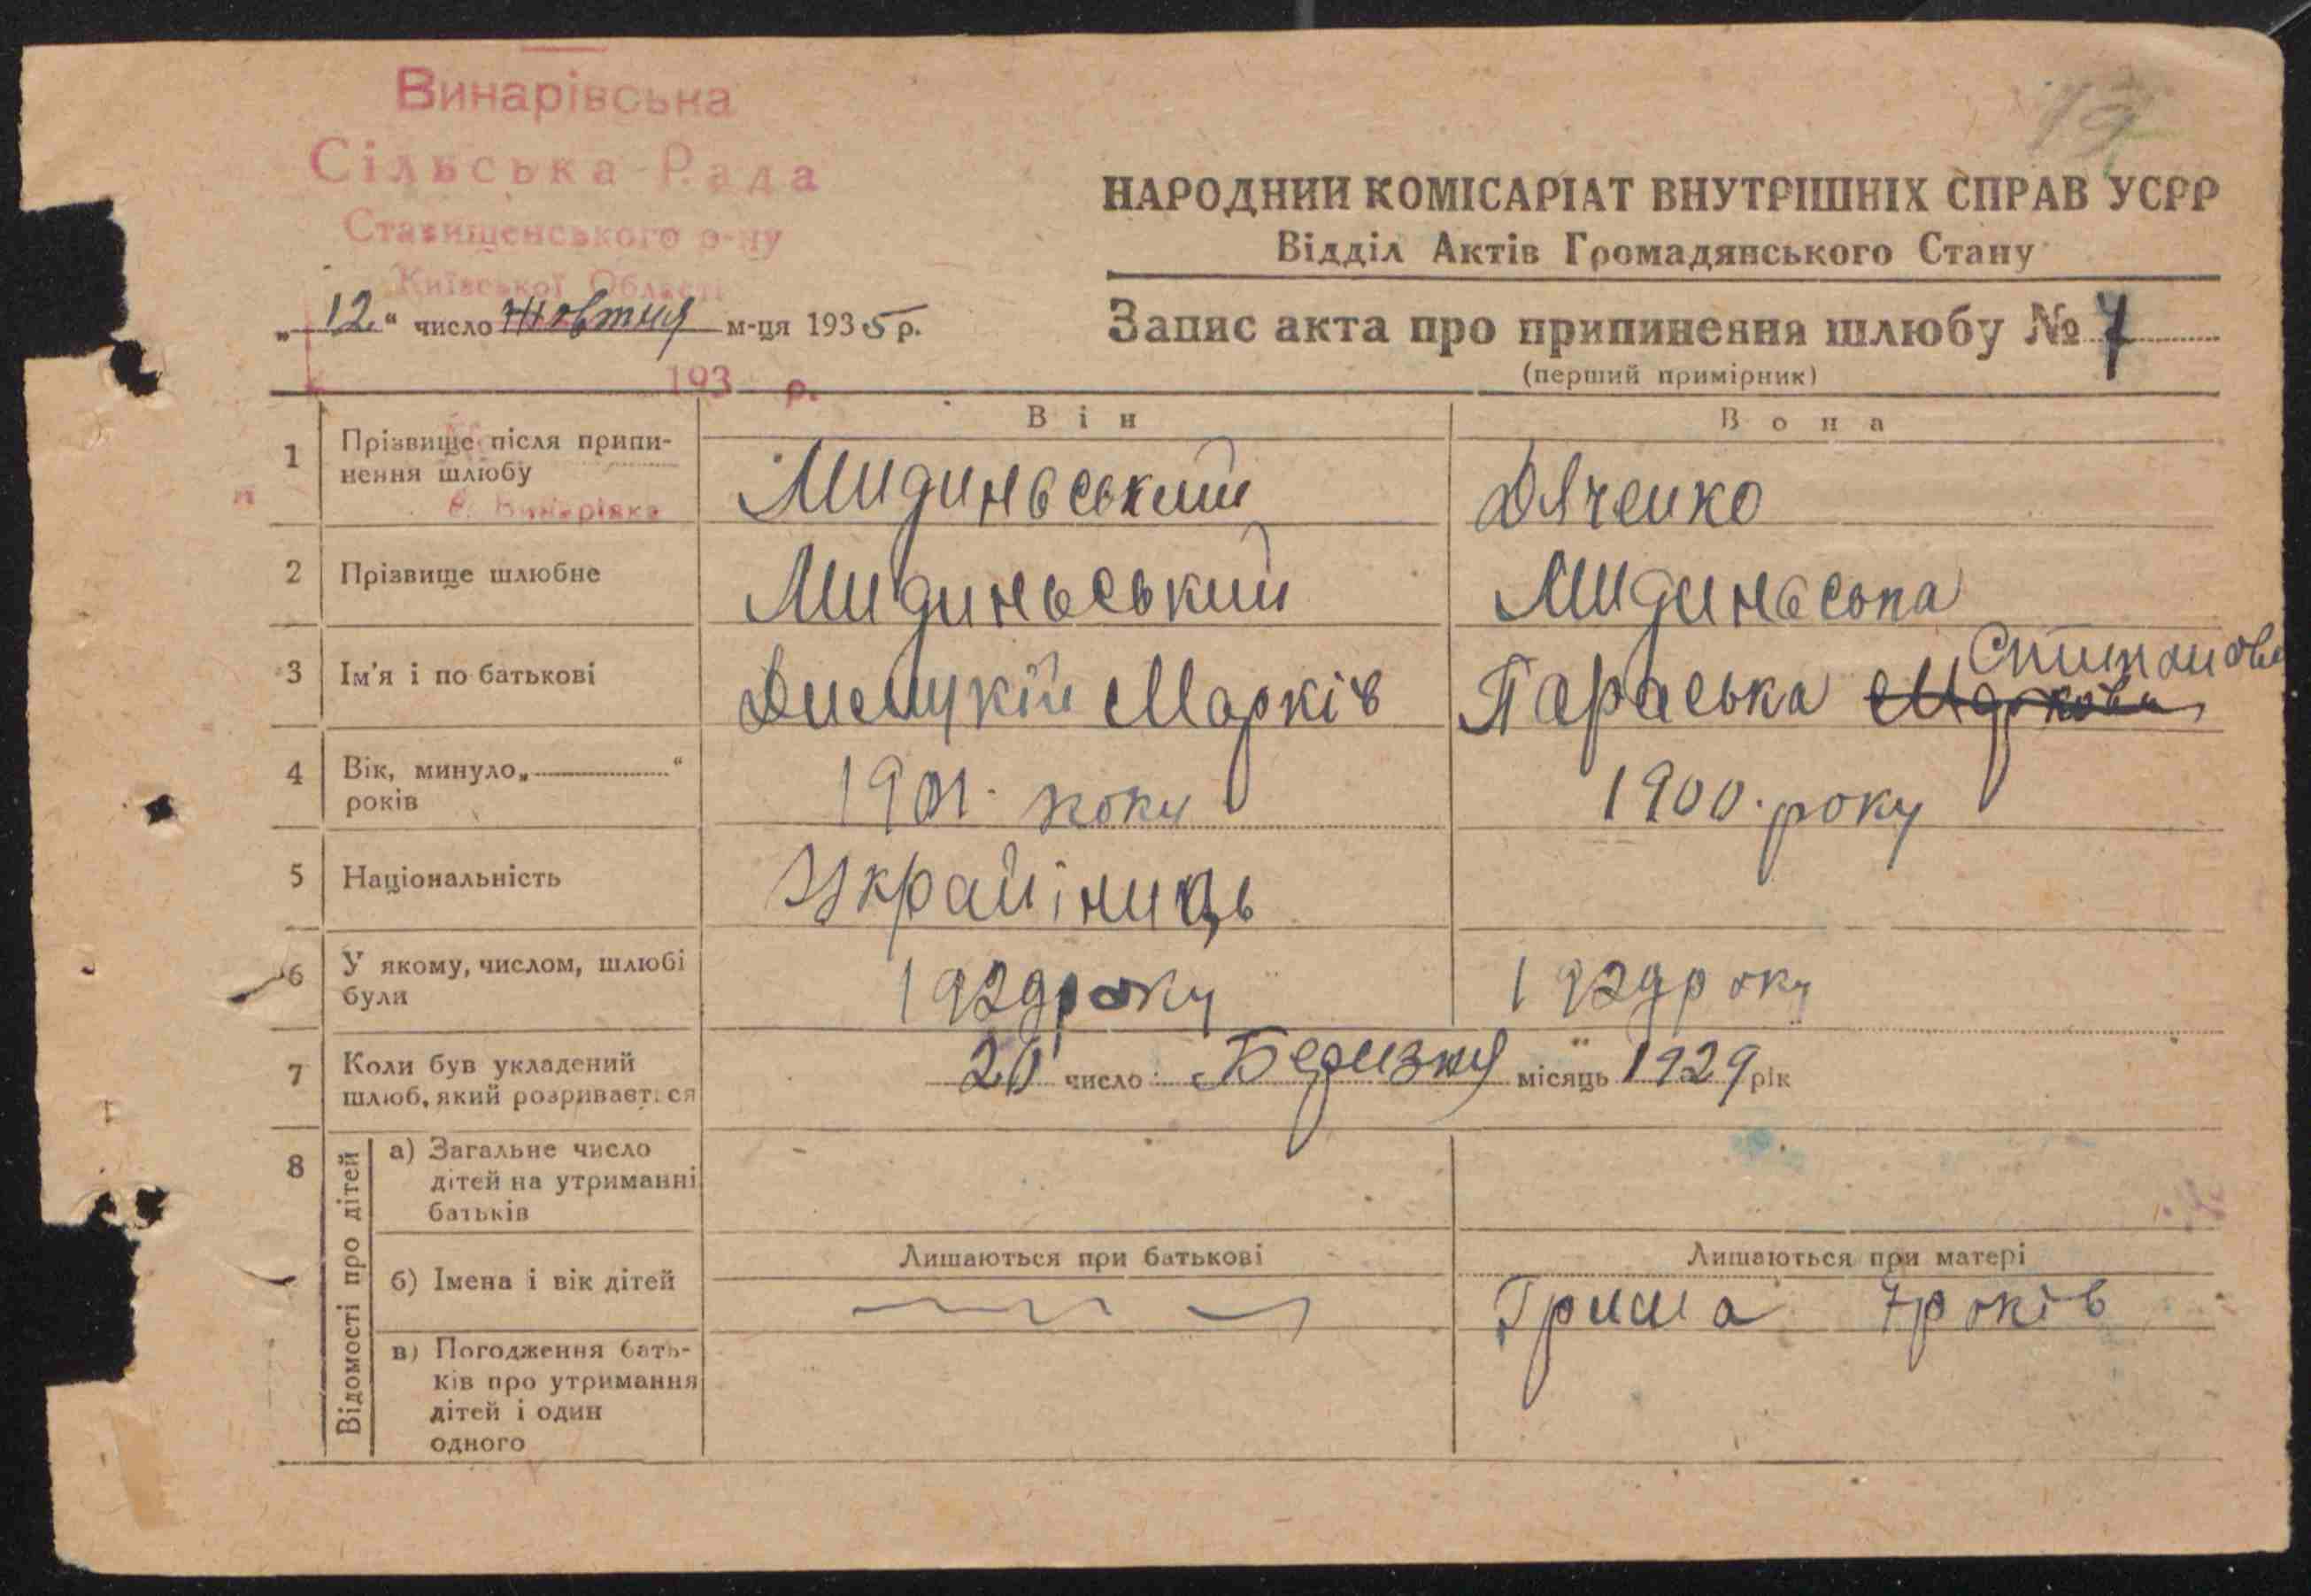 Винарівська
Сільська Рада
Ставищенського р-ну
Київської Області
19
НАРОДНИЙ КОМІСАРІАТ ВНУТРІШНІХ СПРАВ УСРР
Відділ Актів Громадянського Стану
„12“ число жовтня м-ця 1935 р.
Запис акта про припинення шлюбу № 7
(перший примірник)
193 р.
Він
Вона
1 Прізвище після припи-
нення шлюбу
с. Винарівка
Мидиньський
Дяченко
2 Прізвище шлюбне
Мидиньський
Мидинсока
3 Ім'я і по батькові
Марків
Параська Маркова
4 Вік, минуло „ “
років
1901. року
1900. року
5 Національність
Украйіниць
6 У якому, числом, шлюбі
були
1929 року
1929 року
7 Коли був укладений
шлюб, який розривається
20 число Беризня місяць 1929 рік
8 Відомості про дітей
а) Загальне число
дітей на утриманні
батьків
б) Імена і вік дітей
Лишаються при батькові
Лишаються при матері
Гриша 7 років
в) Погодження бать-
ків про утримання
дітей і один
одного